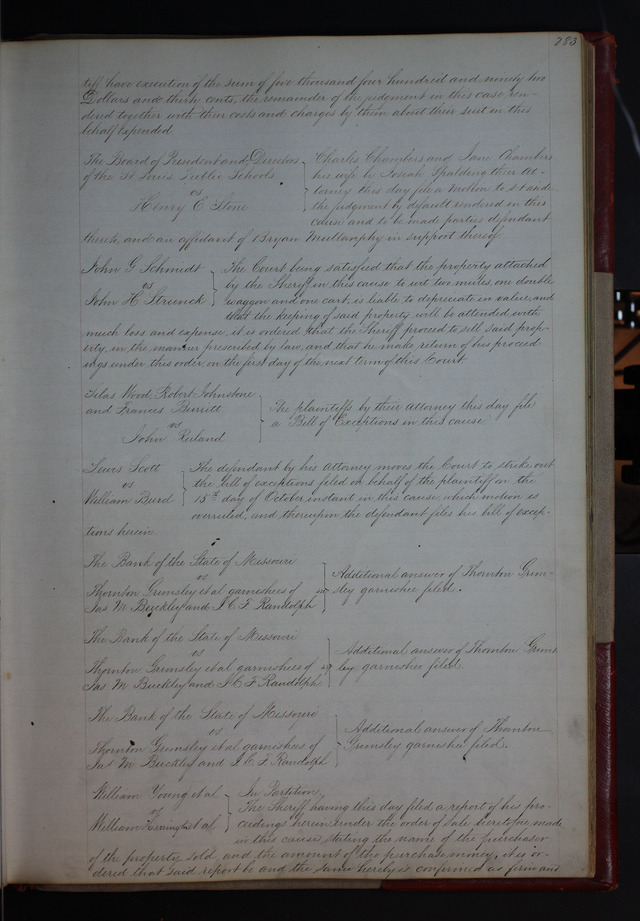 283
tiff have execution of the sum of five thousand four hundred and ninety two
Dollars and thirty cents, the remainder of the judgment in this case ren-
dered together with their costs and charges by them about their suit in this
behalf expended
The Board of President and Directors
of the St Louis Public Schools
vs
Henry C Stone
Charles Chambers and Jane Chambers
his wife by Josiah Spalding their At-
torney this day file a Motion to set aside
the judgment by default rendered in this
cause and to be made parties defendant
thereto, and an affidavit of Bryan Mullanphy in support thereof
John G Schmidt
vs
John H Strunck
The Court being satisfied that the property attached
by the Sheriff in this cause to wit two mules, one double
waggon and one cart, is liable to depreciate in value, and
that the keeping of said property will be attended with
much loss and expense, it is ordered that the Sheriff proceed to sell said prop-
erty, in the manner prescribed by law, and that he make return of his proceed
ings under this order, on the first day of the next term of this Court.
Silas Wood, Robert Johnstone
and Francis Burritt
vs
John Ruland
The plaintiffs by their Attorney this day file
a Bill of Exceptions in this cause
Lewis Scott
vs
William Burd
The defendant by his Attorney moves the Court to strike out
the bill of exceptions filed on behalf of the plaintiff on the
15th day of October instant in this cause, which motion is
overruled, and thereupon the defendant files his bill of excep-
tions herein
The Bank of the State of Missouri
vs
Thornton Grimsley et al garnishees of
Jas M Buckley and J C F Randolph
Additional answer of Thornton Grim-
sley garnishee filed.
The Bank of the State of Missouri
vs
Thornton Grimsley et al garnishees of
Jas M Buckley and J C F Randolph
Additional answer of Thornton Grims
ley garnishee filed.
The Bank of the State of Missouri
vs
Thornton Grimsley et al garnishees of
Jas M Buckley and J C F Randolph
Additional answer of Thornton
Grimsley garnishee filed.
William Young et al
vs
William Herrington et al
In Partition
The Sheriff having this day filed a report of his pro-
ceedings herein under the order of sale heretofore made
in this cause, stating the name of the purchaser
of the property sold and the amount of the purchase money, it is or-
dered that said report be and the same hereby is confirmed as firm and